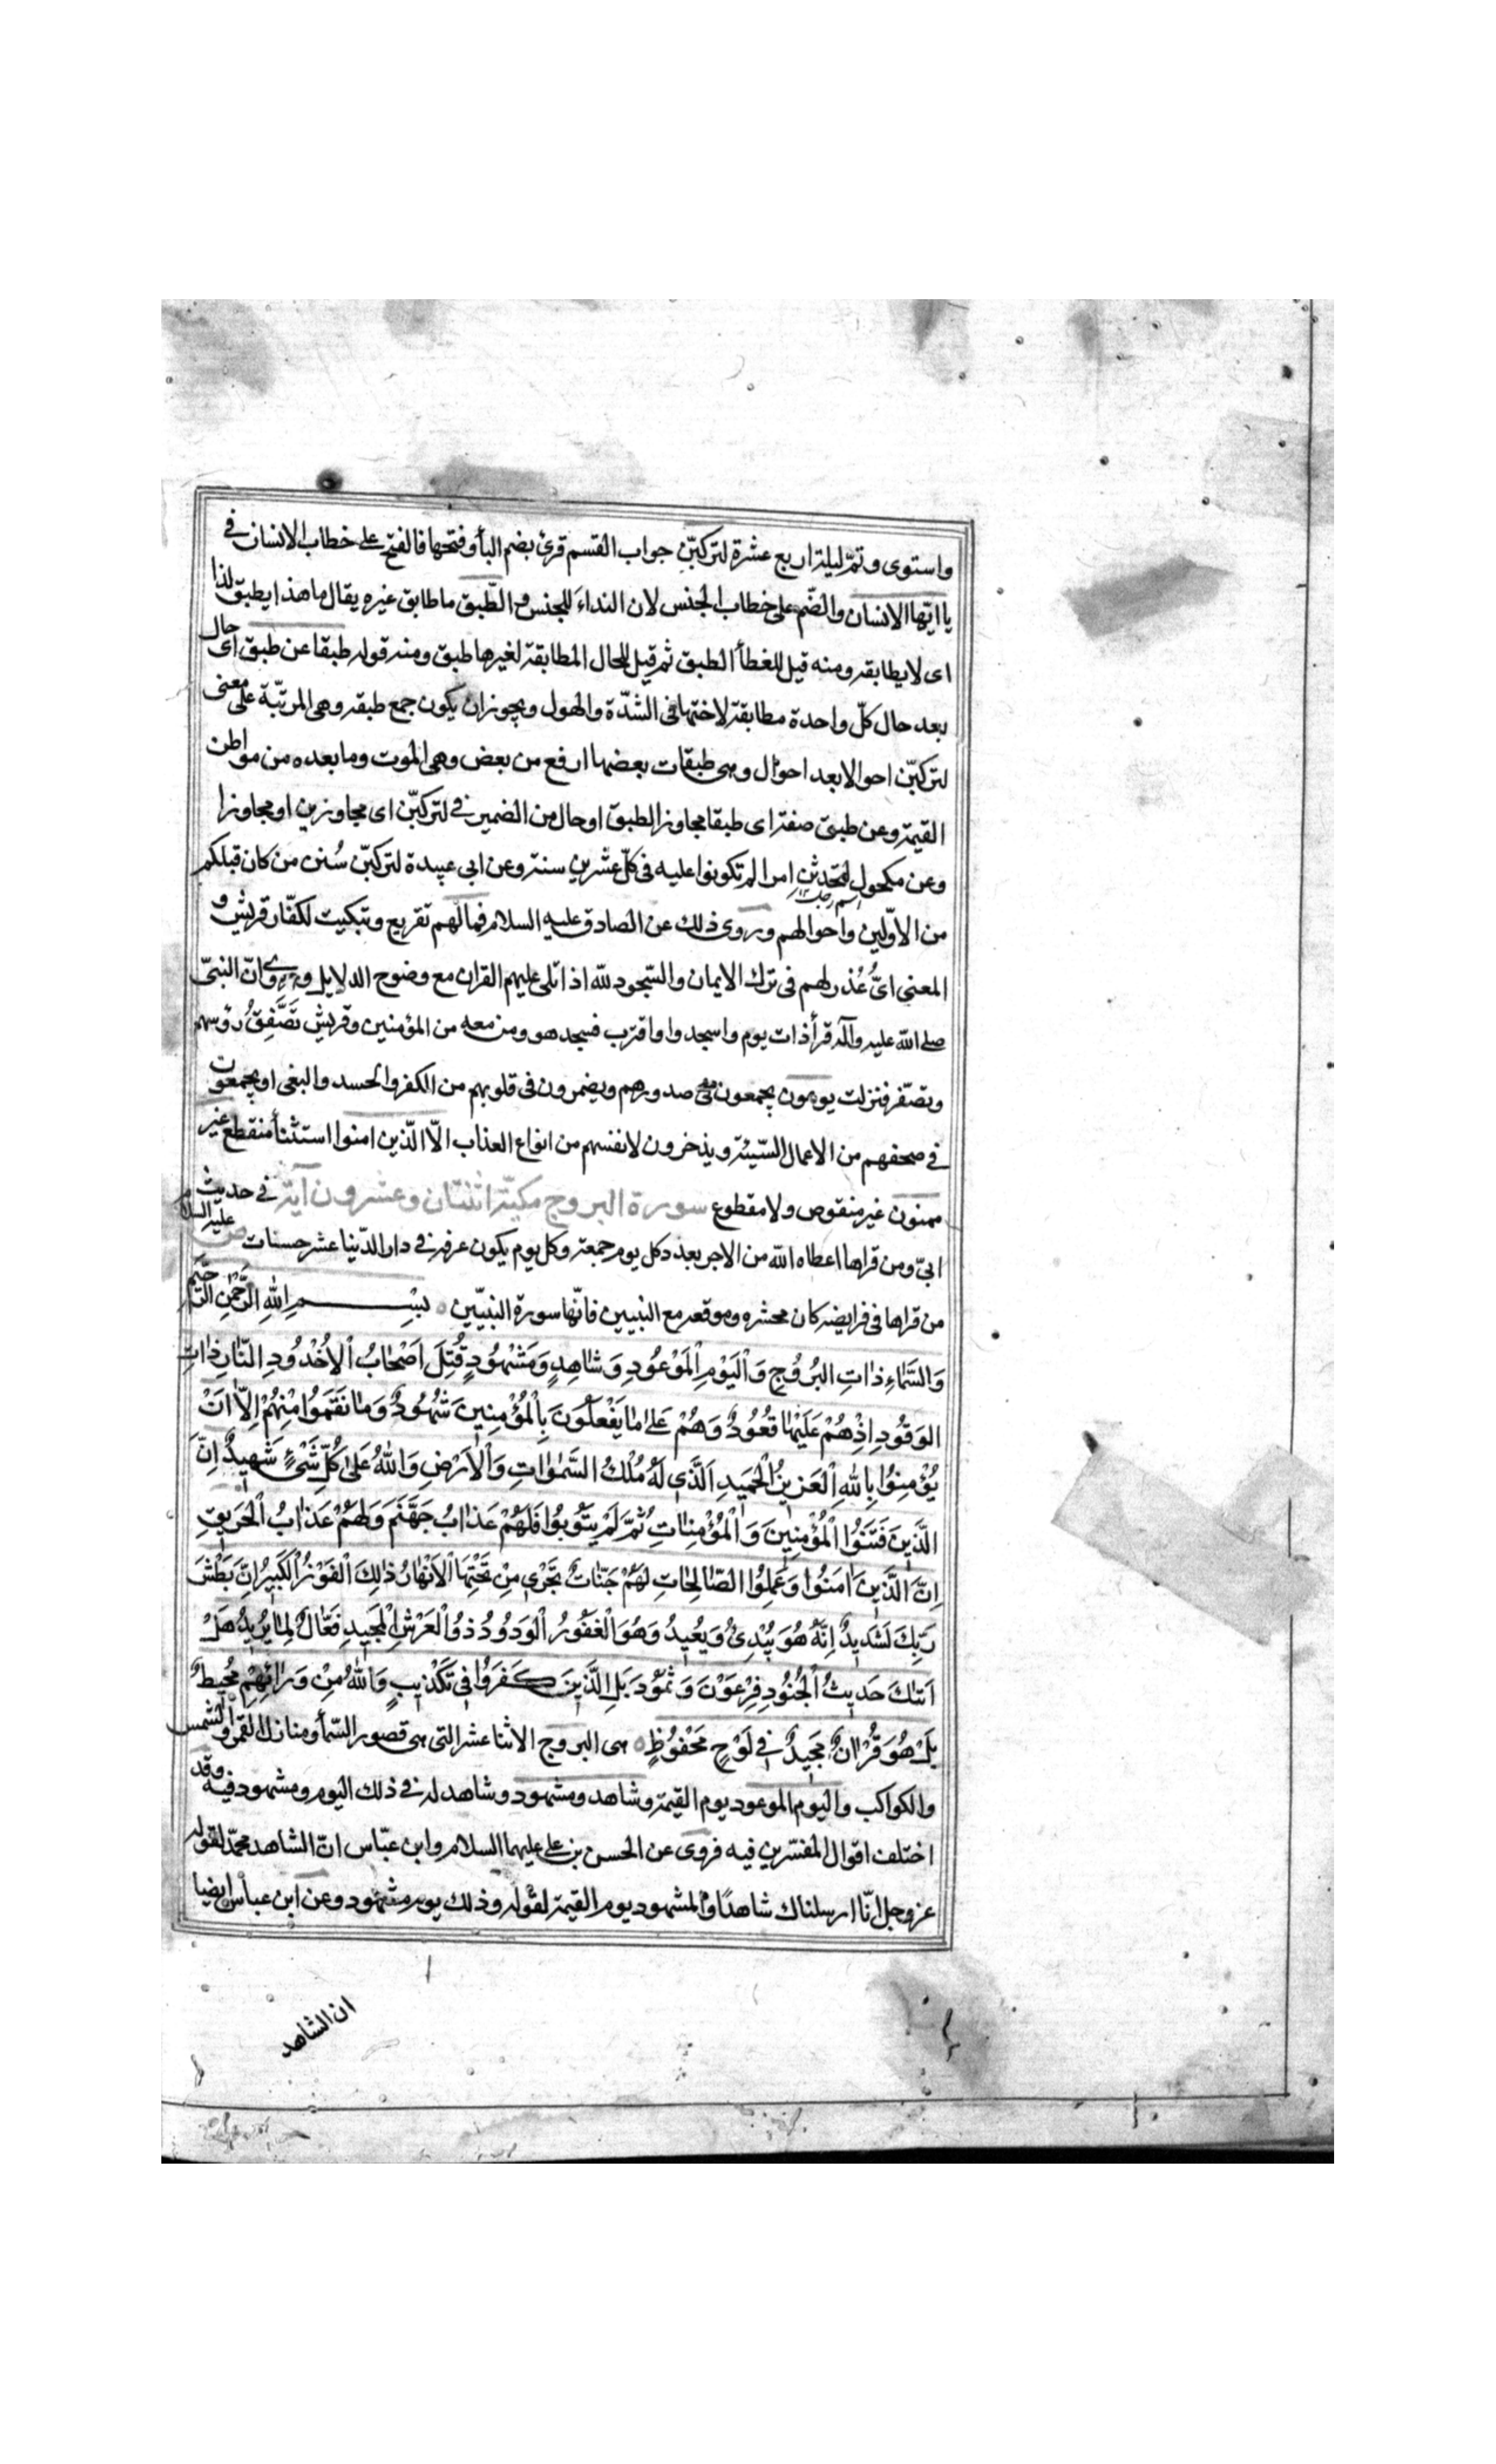 واستوى وتمّ ليلة اربع عشرة لتركبنّ جواب القسم قرئ بضم البأ وفتحها فالفتح على خطاب الانسان في
يا ايّها الانسان والضّم على خطاب الجنس لان النداءَ للجنس و الطّبق ما طابق غيره يقال ما هذا يطبق لذا
اى لا يطابقه ومنه قيل للغطأ الطبق ثم قيل للحال المطابقة لغيرها طبق ومنه قوله طبقا عن طبق اى حال
بعد حال كلّ واحدة مطابقة لاختها فى الشدّة والهول ويجوز ان يكون جمع طبقه وهى المرتبّة على معنى
لتركبّن احوالا بعد احوال وهى طبقات بعضها ارفع من بعض وهى الموت وما بعده من مواطن
القيمة وعن طبق صفة اى طبقا مجاوز الطبق او حال من الضمير في لتركبّن اى مجاوزين او مجاوزا
وعن مكحول لتحدثن امرا لم تكونوا عليه فى كلّ عشرين سنة وعن ابي عبيدة لتركبّن سُنن من كان قبلكم
اسم رجل ١٢
من الاوّلين واحوالهم وروى ذلك عن الصادق عليه السلام فما لهم تقريع وتبكيت لكفّار قريش و
المعنى اىُّ عُذر لهم فى ترك الايمان والسّجود لله اذا تلى عليهم القران مع وضوح الدلايل وروى انّ النبىّ
صلى الله عليه وآله قرأ ذات يوم واسجد واقترب فسجد هو ومن معه من المؤمنين وقريش تَصَّفِقُ رؤسهم
وتصّفر فنزلت يوعون يجمعون فى صدورهم ويضمرون فى قلوبهم من الكفر والحسد والبغى او يجمعون
في صحفهم من الاعمال السّيئة ويذخرون لانفسهم من انواع العذاب الّا الّذين امنوا استثنأ منقطع غير
ممنون غير منقوص ولا مقطوع سورة البروج مكيّة اثنتان وعشرون آية في حديث
ابىّ ومن قراها اعطاه الله من الاجر بعدد كل يوم جمعة وكل يوم يكون عرفة في دار الدّنيا عشر حسنات ص عليه السلام
من قراها فى فرايضه كان محشره وموقعه مع النبيين فانّها سورة النبيّين ٥ بِسْمِ اللهِ الرَّحْمٰنِ الرَّحِيَّمِ
وَالسَّمَاءِ ذاتِ البُرُوُجِ وَالْيَوْمِ الْمَوْعُودِ وَشاهِدٍ وَمَشْهُودٍ قُتِلَ اَصْحابُ الْاُخْدُودِ النّارِ ذاتِ
الوَقُودِ اِذْهُمْ عَلَيْها قُعُوُدٌ وَهُمْ عَلى ما يَفْعَلُونَ بِالْمُؤْمِنِينَ شُهُودٌ وَما نَقَمُوا مِنْهُمْ اِلّا اَنْ
يُؤْمِنُوا بِاللهِ الْعَزِيزِ الْحَمِيدِ اَلَّذِى لَهُ مُلْكُ السَّمٰوٰاتِ وَالْاَرْضِ وَاللهُ عَلىٰ كُلِّ شَىْءٍ شَهِيدٌ اِنَّ
الَّذِينَ فَتَنُوا الْمُؤْمِنِينَ وَالْمُؤْمِناتِ ثُمَّ لَمْ يَتُوبُوا فَلَهُمْ عَذابُ جَهَنَّمَ وَلَهُمْ عَذابُ الْحَرِيقِ
اِنَّ الَّذِينَ اٰمَنُوا وَعَمِلُوا الصّالِحاتِ لَهُمْ جَنّاتٌ تَجْرِى مِنْ تَحْتِهَا الْاَنْهارُ ذٰلِكَ الْفَوْزُ الْكَبِيرُ اِنَّ بَطْشَ
رَبِّكَ لَشَدِيدٌ اِنَّهُ هُوَ يُبْدِئُ وَيُعِيدُ وَهُوَ الْغَفُورُ الْوَدُودُ ذُو الْعَرْشِ الْمَجِيدِ فَعّالٌ لِما يُرِيدُ هَلْ
اَتٰكَ حَدِيثُ الْجُنُودِ فِرْعَوْنَ وَثَمُوْدَ بَلِ الَّذِينَ كَفَرُوا فِى تَكْذِيبٍ وَاللهُ مِنْ وَرائِهِمْ مُحِيطٌ
بَلْ هُوَ قُرْانٌ مَجِيدٌ فِي لَوْحٍ مَحْفُوظٍ ٥ هى البروج الاثنا عشر التى هى قصور السّمأ ومنازل القمر والشمس
والكواكب واليوم الموعود يوم القيمة وشاهد ومشهود وشاهد له في ذلك اليوم ومشهود فيه وقد
اختلف اقوال المفسّرين فيه فروى عن الحسن بن على عليهما السلام وابن عبّاس انّ الشاهد محمّد لقوله
عزوجل انّا ارسلناك شاهدًا والمشهود يوم القيمة لقوله وذلك يوم مشهود وعن ابن عباس ايضا
ان الشاهد